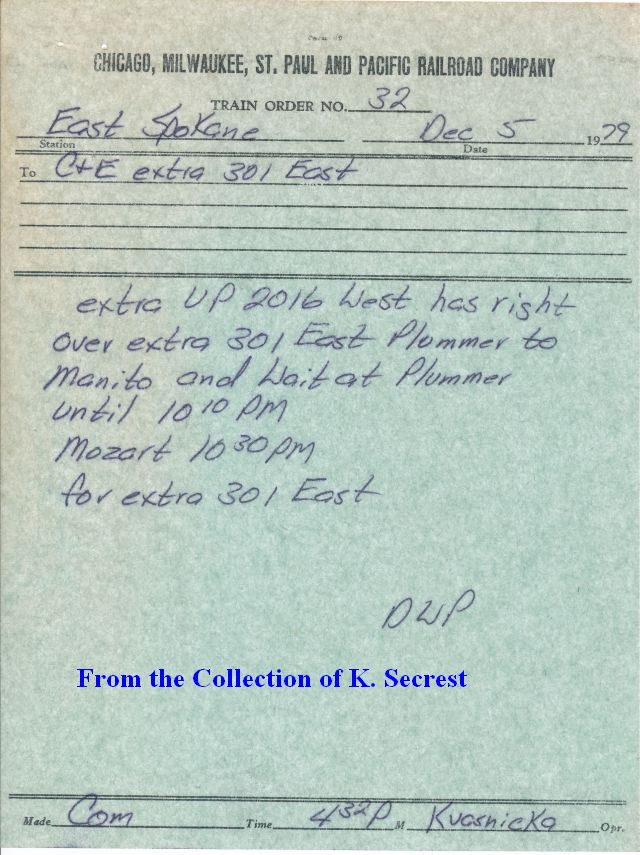 CHICAGO, MILWAUKEE, ST. PAUL AND PACIFIC RAILROAD COMPANY
TRAIN ORDER NO. 32
East Spokane Dec 5 1979
Station Date
To C+E extra 301 East
extra UP 2016 West has right
over extra 301 East Plummer to
Manito and Wait at Plummer
until 10 10 PM
Mozart 10 30 pm
for extra 301 East
DWP
From the Collection of K. Secrest
Made Com Time 4 32 P M Kvasnicka Opr.